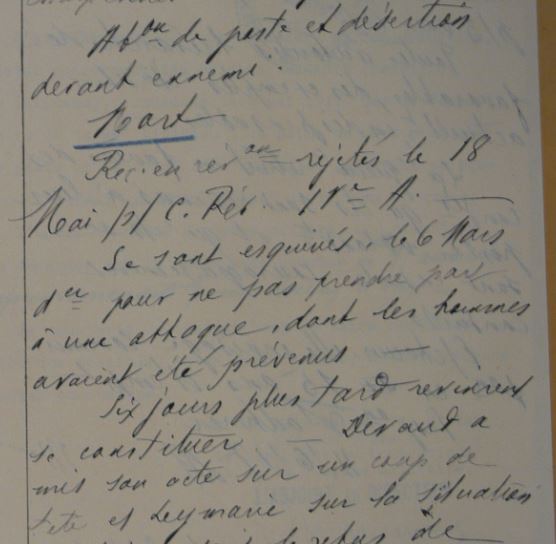 Ab^on de poste et désertion
devant ennemi.
Mort
Rec. en rév^on rejetés le 18
Mai p/ C. Rév 1re A.
Se sont esquivés, le 6 Mars
d^er pour ne pas prendre part
à une attaque, dont les hommes
avaient été prévenus
Six jours plus tard revinrent
se constituer Devaud a
mis son acte sur un coup de
tête et Leymarie sur la situation
le refus de